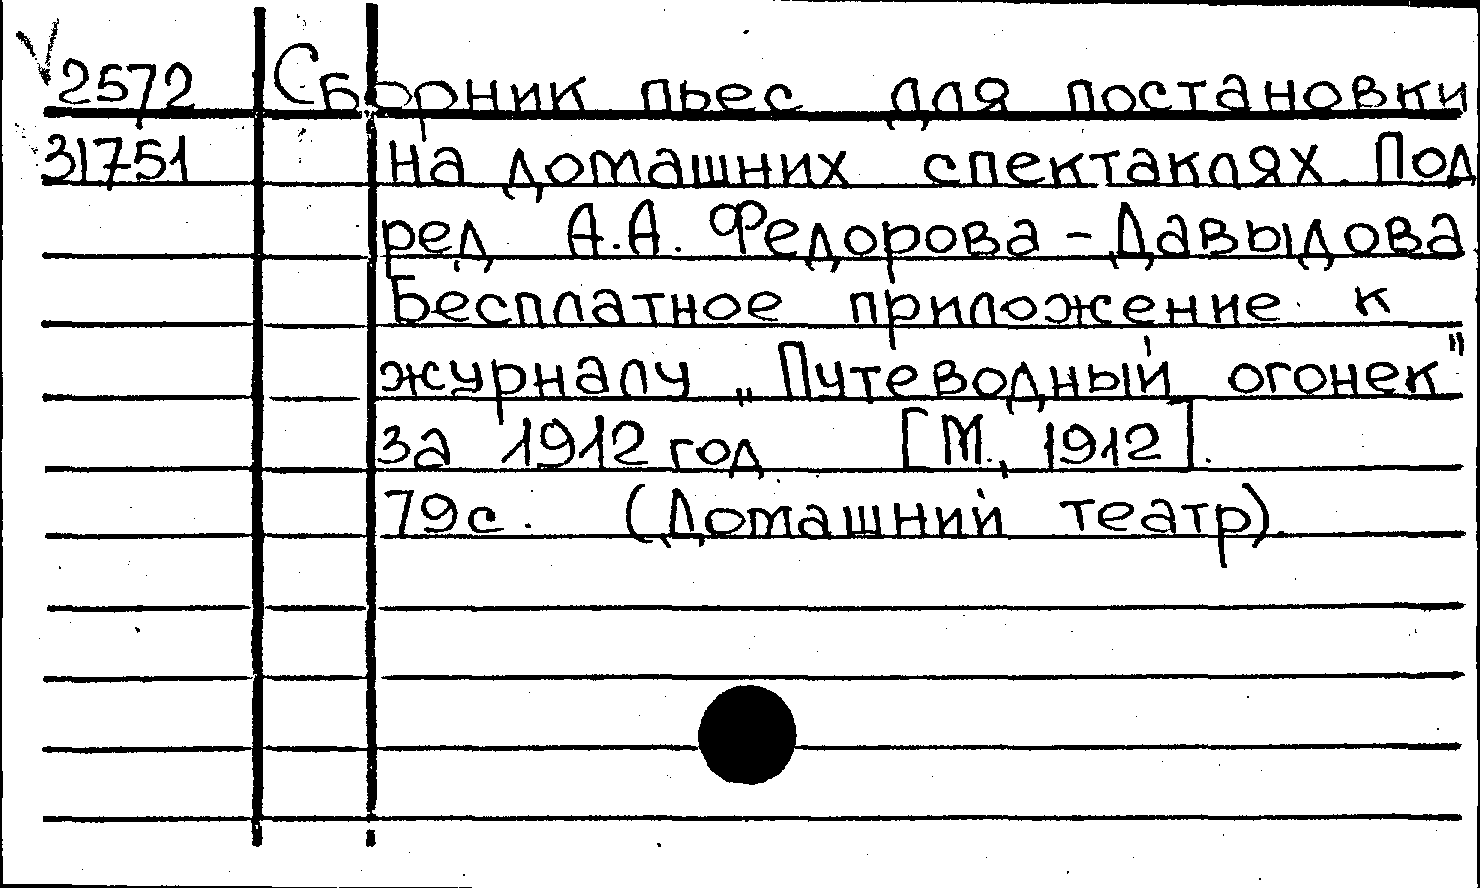 √ 2572 Сборник пьес для постановки
31751 на домашних спектаклях. Под
ред А.А. Федорова-Давыдова.
Бесплатное приложение к
журналу „Путеводный огонек"
за 1912 год [М., 1912].
79с. (Домашний театр).